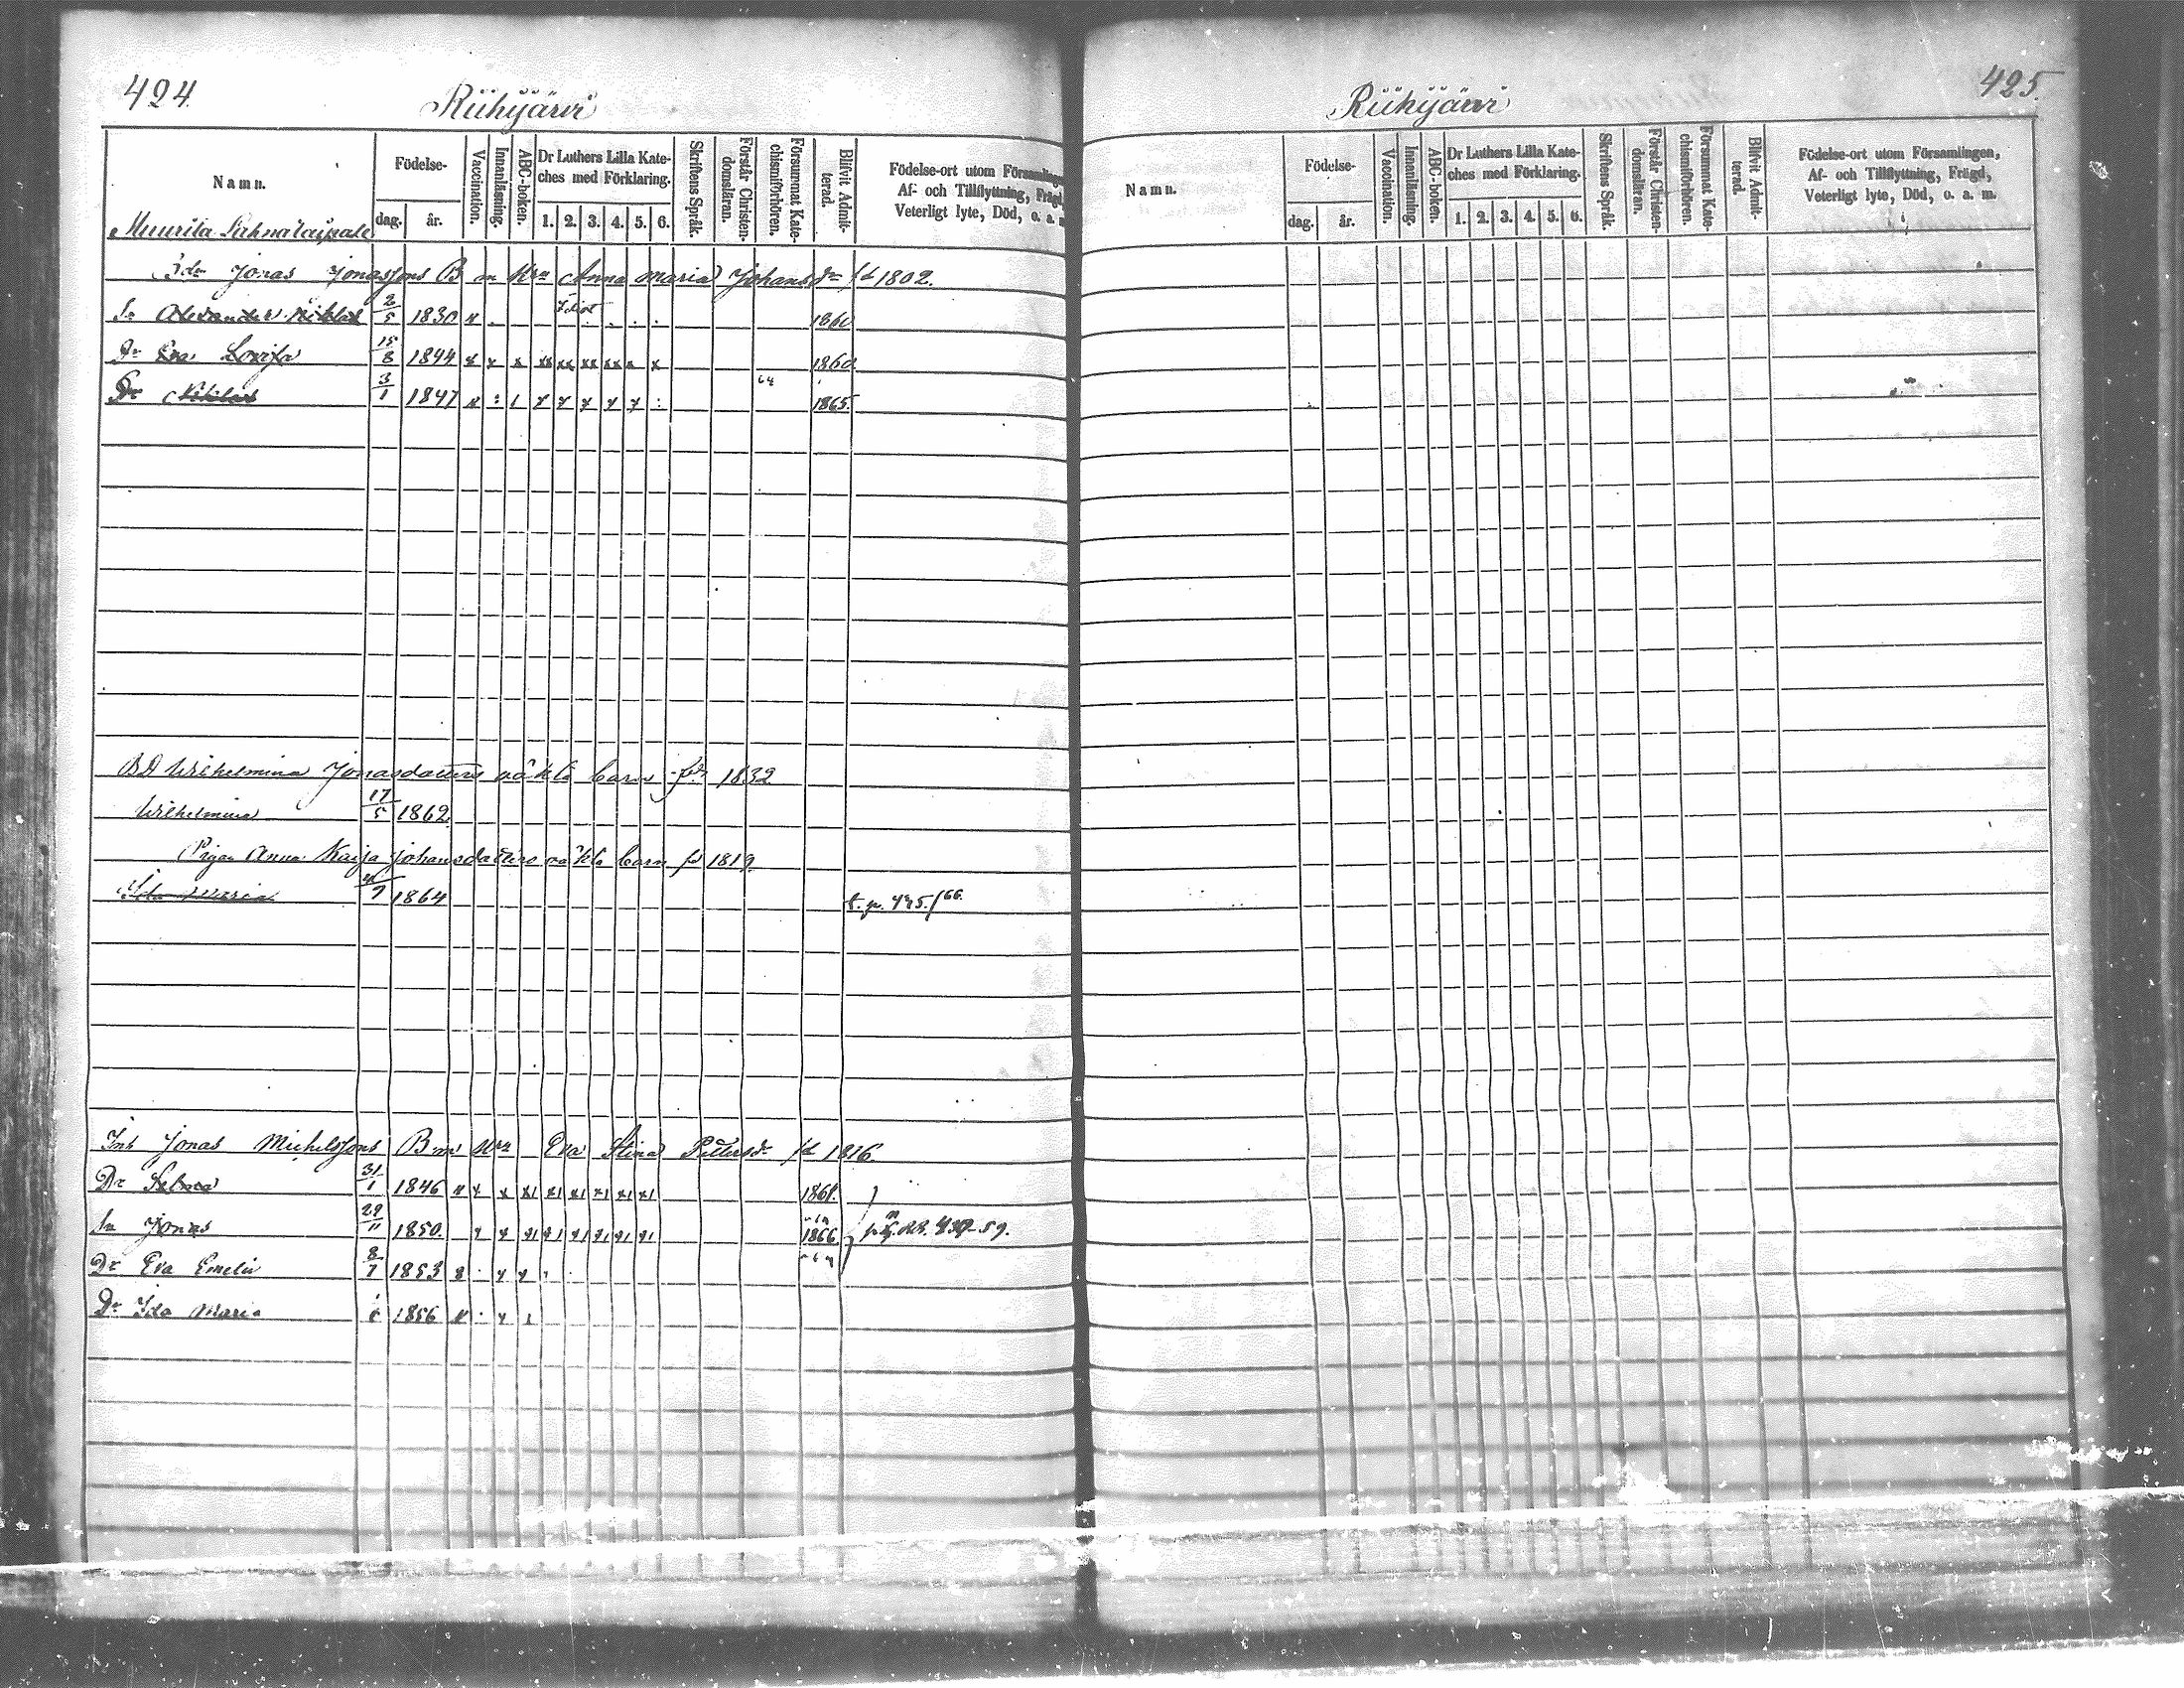 424.
Riihijärvi
Namn.
Födelse-
dag.
år.
Vaccination.
Innanläsning.
ABC-boken.
Dr Luthers Lilla Kate-
ches med Förklaring.
1. 2. 3. 4. 5. 6.
Skriftens Språk.
Förstår Christen-
domsläran.
Försummat Kate-
chismiförhören.
Blifvit Admit-
terad.
Födelse-ort utom Församlinge
Af- och Tillflyttning, Frägd,
Veterligt lyte, Död, o. a. m
Muurila
Jonas Jonassons B m Hru Anna Maria Johansdr fd 1802.
Sn Alexander Niklas 2/5 1830 Idiot 1860
Dr Eva Lovisa 15/8 1844 x x x xx xx xx xx x x 1860.
Niklas 3/1 1847 64 1865.
BD Wilhelmina Jonasdotters oäkta barn född 1832
Wilhelmina 17/5 1862.
Pigan Anna Kaijsa Johansdotters oäkta barn fd 1819.
Ida Maria 7 1864 t. p. 425./66.
Inh Jonas Michelssons B m Hru Eva Stina Pettersdr fd 1816.
Dr Selma 31/1 1846 1861.
Sn Jonas 29/11 1850. 1866.
Dr Eva Emelie 8/7 1853
Dr Ida Maria 1856
425.
Riihijärvi
Namn.
Födelse-
dag.
år.
Vaccination.
Innanläsning.
ABC-boken.
Dr Luthers Lilla Kate-
ches med Förklaring.
1. 2. 3. 4. 5. 6.
Skriftens Språk.
Förstår Christen-
domsläran.
Försummat Kate-
chismiförhören.
Blifvit Admit-
terad.
Födelse-ort utom Församlingen,
Af- och Tillflyttning, Frägd,
Veterligt lyte, Död, o. a. m.